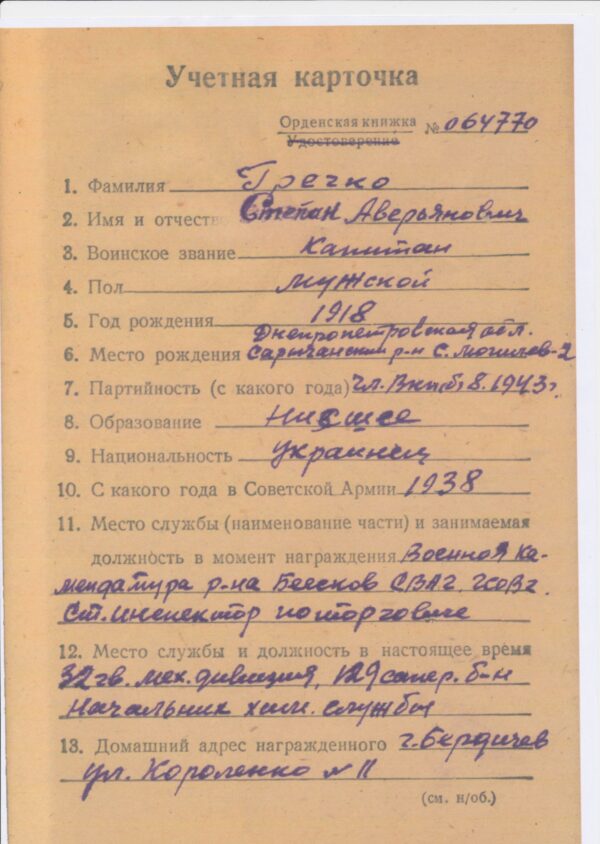 Учетная карточка
Орденская книжка № 064770
Удостоверение
1. Фамилия Гречко
2. Имя и отчество Степан Аверьянович
3. Воинское звание Капитан
4. Пол мужской
5. Год рождения 1918
Днепропетровская обл.
6. Место рождения Сарычанский р-н с. Могилев-2
7. Партийность (с какого года) Чл. Вкп(б) 8.1943г
8. Образование Низшее
9. Национальность украинец
10. С какого года в Советской Армии 1938
11. Место службы (наименование части) и занимаемая
должность в момент награждения Военная ка-
мендатура р-на Беесков СВАГ. ГСОВГ.
Ст. инспектор по торговле
12. Место службы и должность в настоящее время
32 гв. мех. дивизия, 129 сапер. б-н
Начальник хим. службы
13. Домашний адрес награжденного г. Бердичев
ул. Короленко № 11
(см. н/об.)